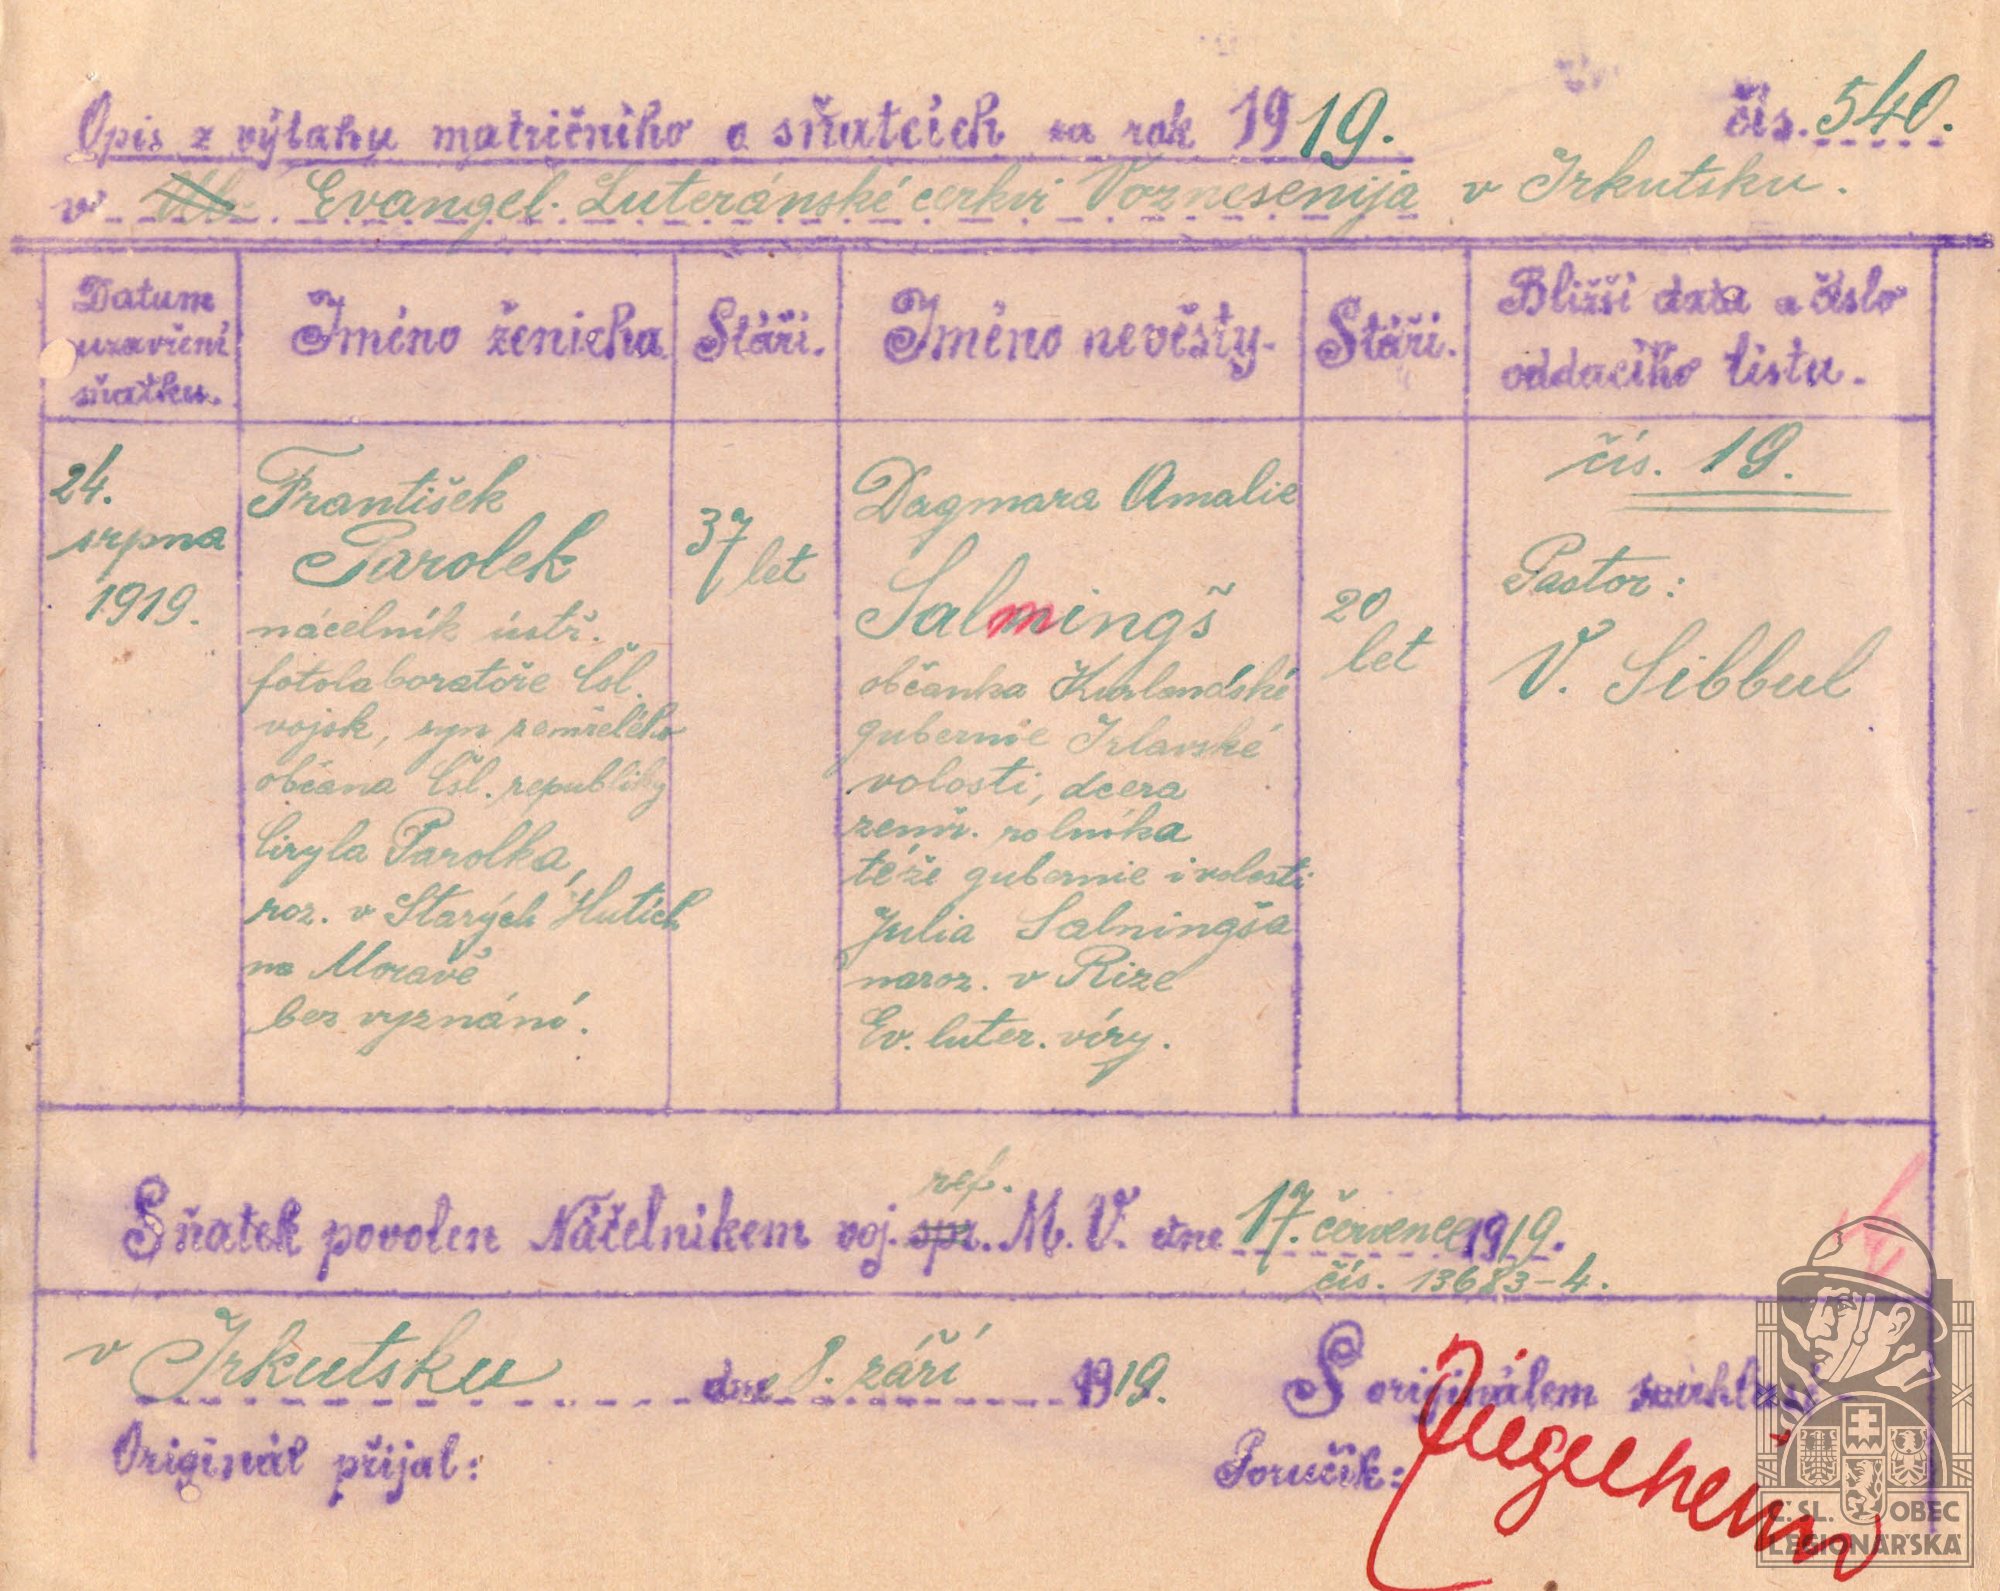 Opis z výtahu matričního o sňatcích za rok 1919. čís. 540.
v Evangel. Luteránské cerkvi Voznesenija v Irkutsku.
Datum uzavření sňatku.
Jméno ženicha
Stáří.
Jméno nevěsty.
Stáří.
Bližší data a číslo oddacího listu.
24.
srpna
1919.
František
Parolek
náčelník ústř.
fotolaboratoře Čsl.
vojsk, syn zemřelého
občana Čsl. republiky
Ciryla Parolka,
roz. v Starých Hutích
na Moravě
bez vyznání.
37
let
Dagmara Amalie
Salmingš
občanka Kurlandské
gubernie Irlavské
volosti, dcera
zemř. rolníka
téže gubernie i volosti
Julia Salningša
naroz. v Rize
Ev. luter. víry.
20
let
čís. 19.
Pastor:
V. Sibbul
ref.
Sňatek povolen Náčelníkem voj. spr. M. V. dne 17. července 1919.
čís. 13683-4.
v Irkutsku dne 8. září 1919.
S originálem
Originál přijal:
Poručík:
Č.SL. OBEC
LEGIONÁŘSKÁ